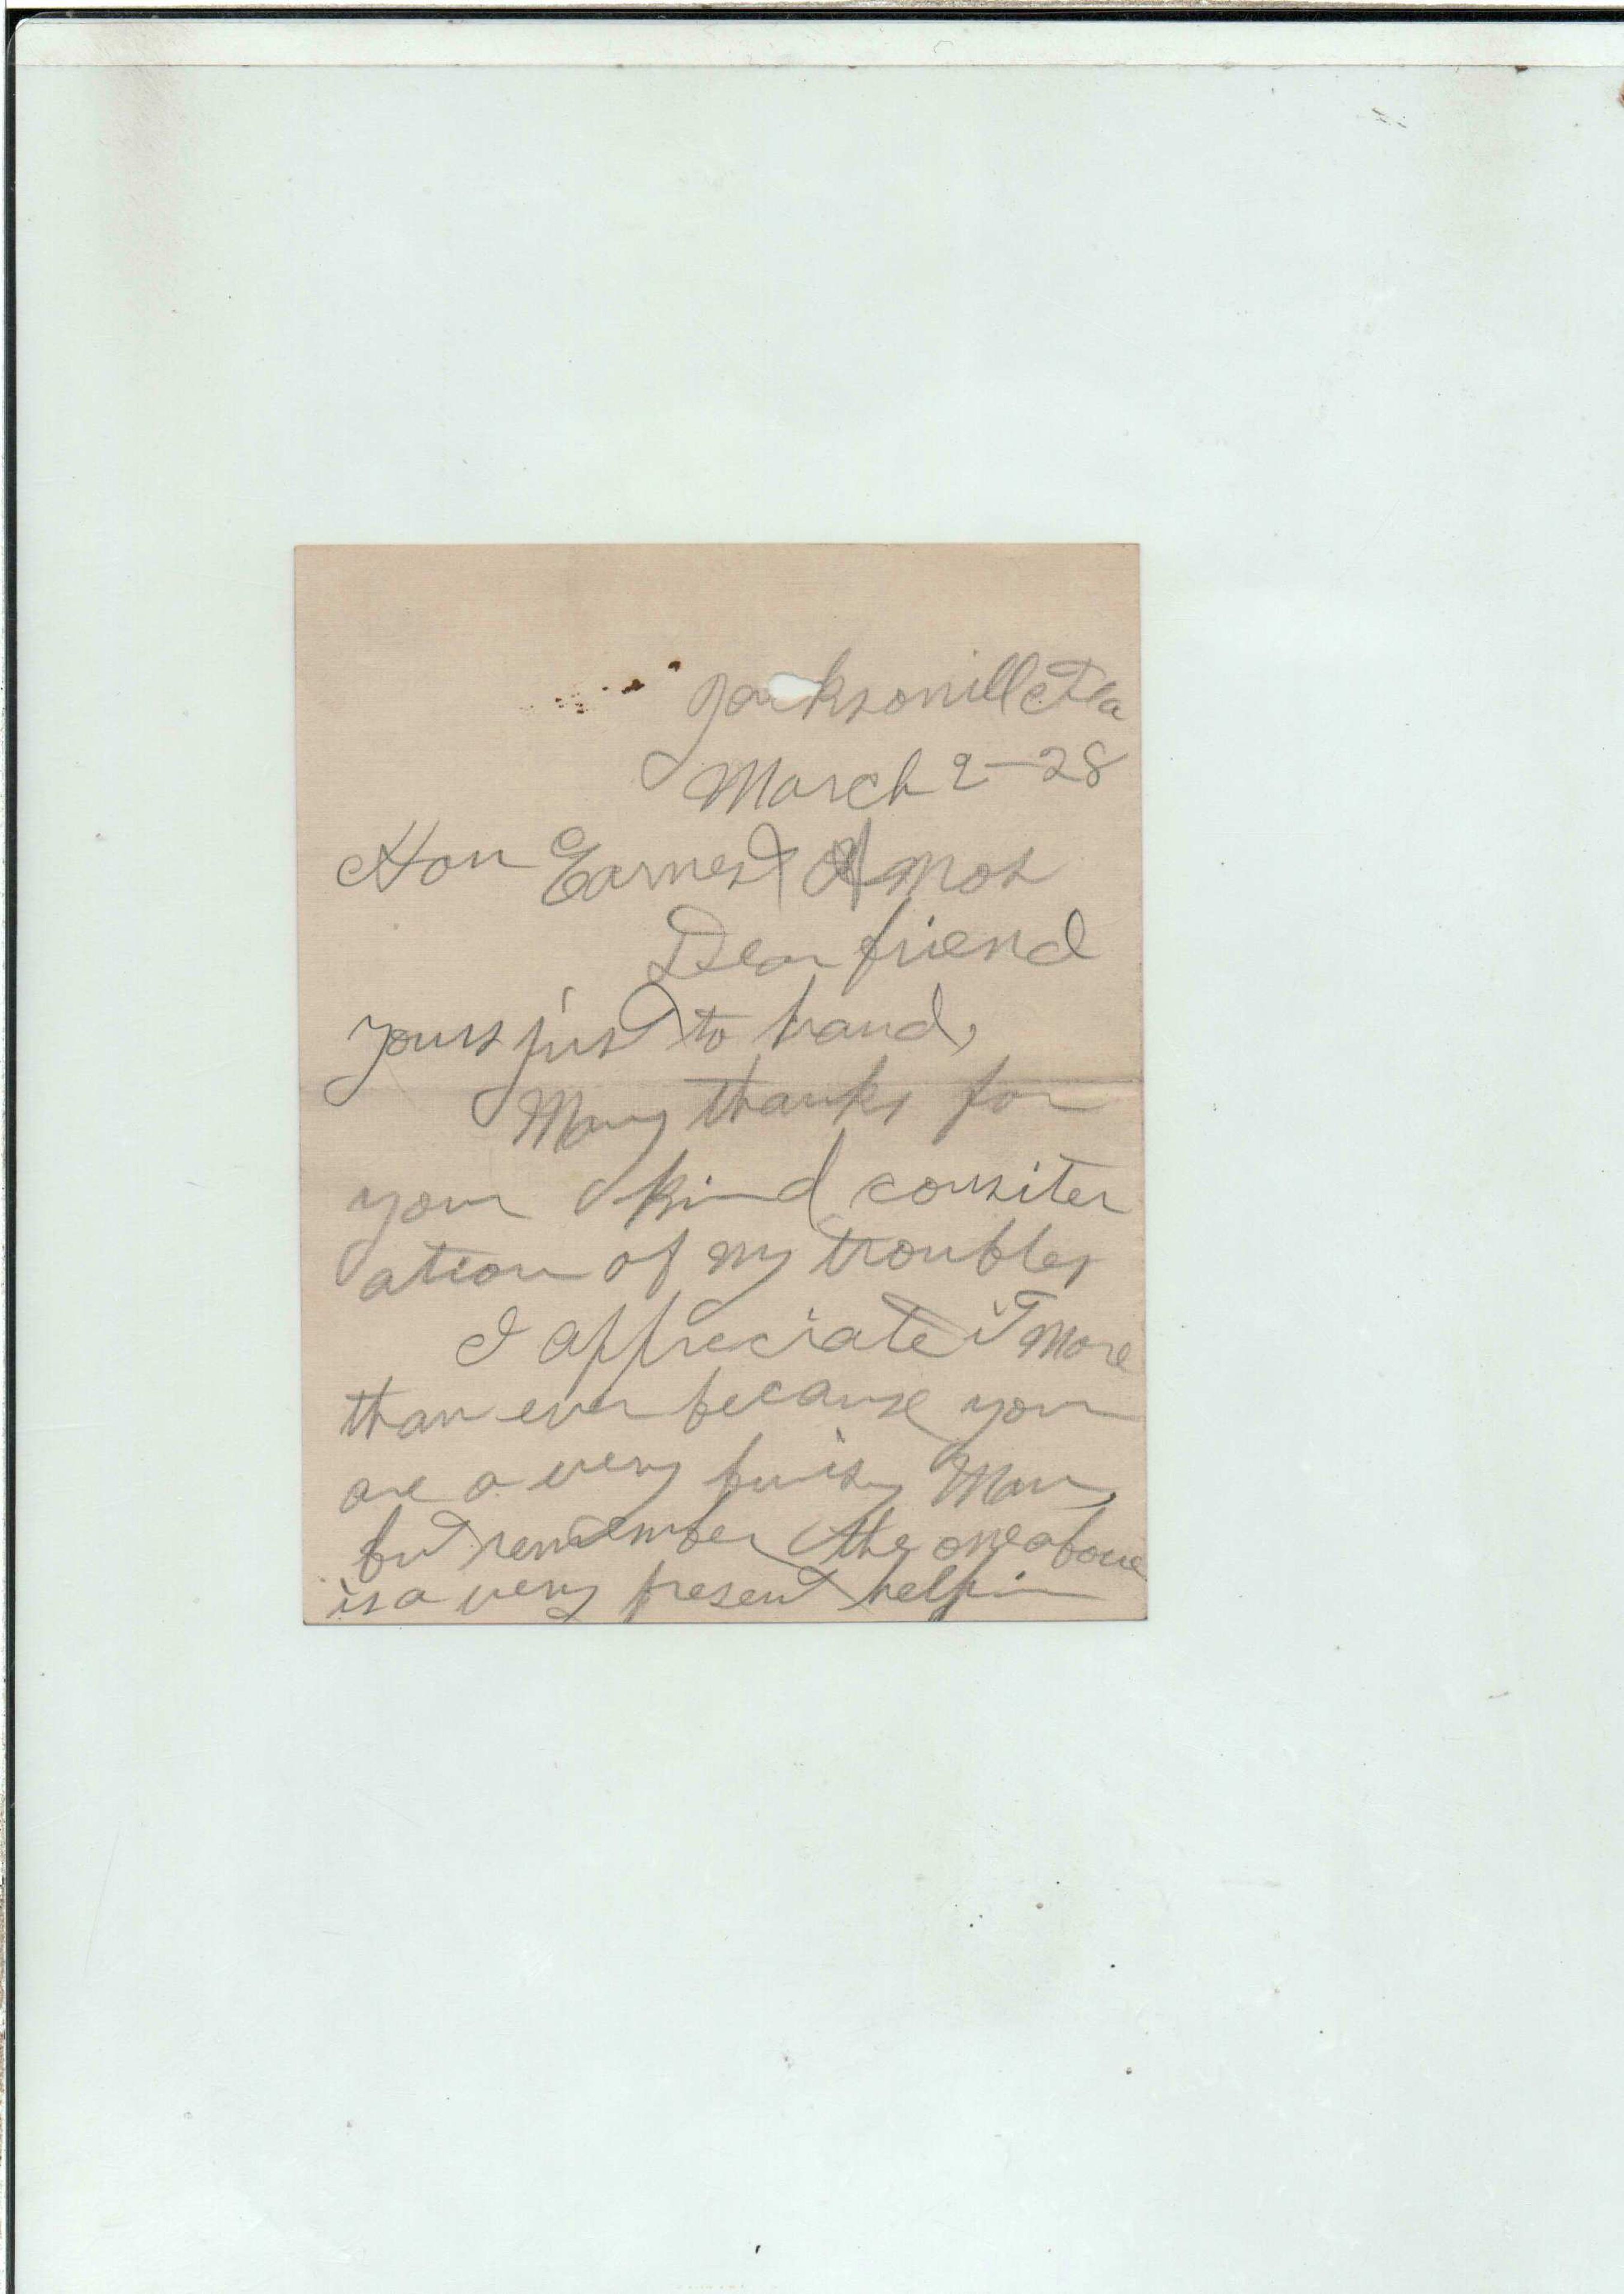 Jacksonville Fla
March 2-28
Hon Earnest Amos
Dear friend
yours just to hand,
Many thanks for
your kind consiter
ation of my troubles
I appreciate it More
than ever because you
are a very buisy Man,
but remember the one above
is a very present help in